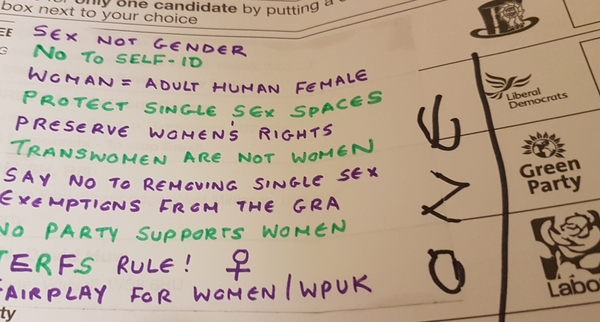 only one candidate by putting a
box next to your choice
SEX NOT GENDER
NO TO SELF-ID
WOMAN = ADULT HUMAN FEMALE
PROTECT SINGLE SEX SPACES
PRESERVE WOMEN'S RIGHTS
TRANSWOMEN ARE NOT WOMEN
SAY NO TO REMOVING SINGLE SEX
EXEMPTIONS FROM THE GRA
NO PARTY SUPPORTS WOMEN
TERFS RULE! ♀
FAIRPLAY FOR WOMEN/WPUK
NONE
Liberal
Democrats
Green
Party
Labo